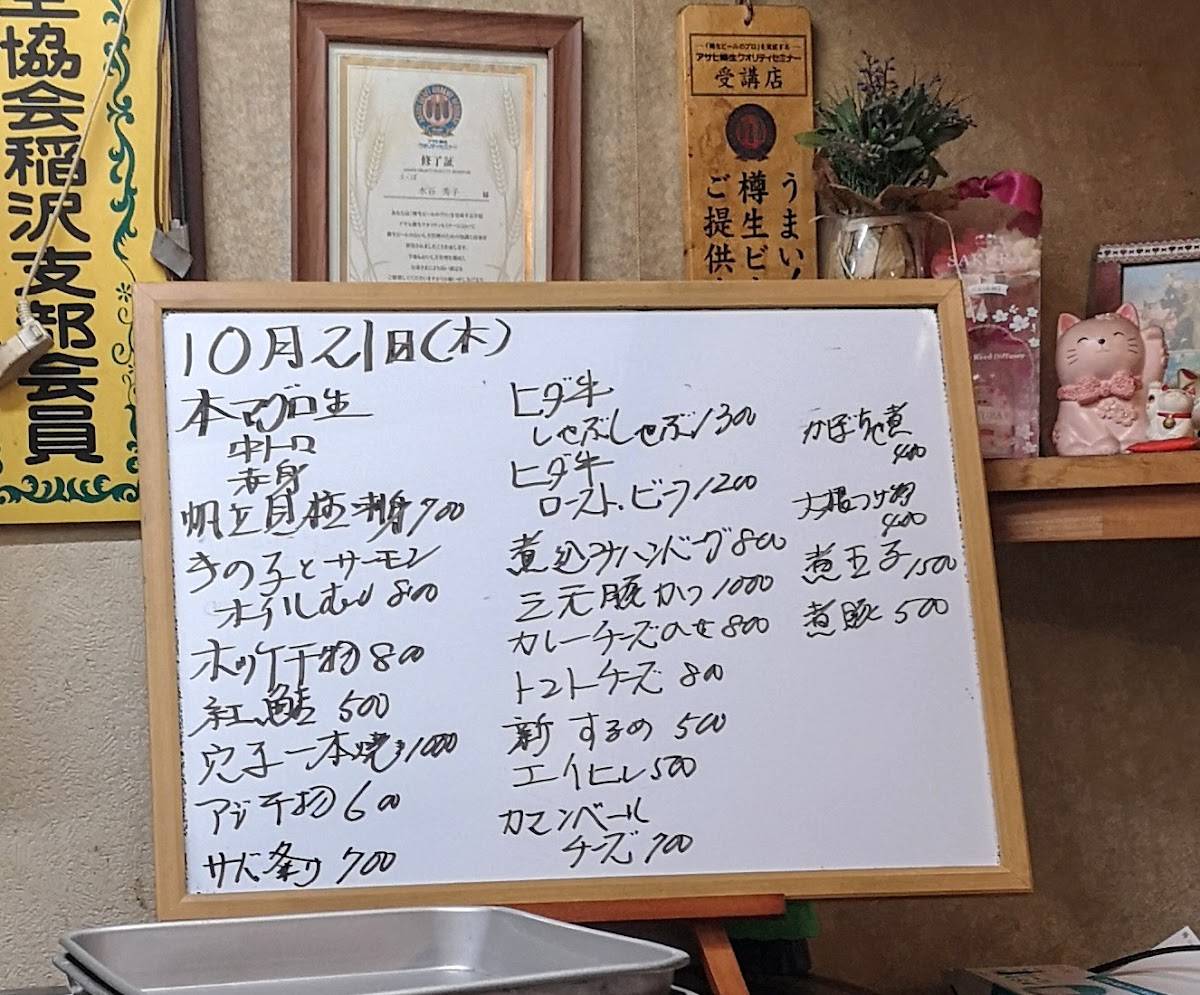 協会稲沢支部会員
修了証
水谷 秀子
「樽生ビールのプロ」を育成する
アサヒ樽生クオリティセミナー
受講店
うまい!
樽生ビ
ご提供
SAKURA
Reed Diffuser
10月21日(木)
本マグロ生
中トロ
赤身
帆立貝極刺身700
きの子とサーモン
ホイルむし 800
ホッケ干物 800
紅鮭 500
穴子一本焼き1000
アジ干物 600
サバ 700
ヒダ牛
しゃぶしゃぶ1300
ヒダ牛
ローストビーフ1200
煮込みハンバーグ800
三元豚かつ1000
カレーチーズのせ800
トマトチーズ 800
新 するめ 500
エイヒレ500
カマンベール
チーズ 700
かぼちゃ煮
400
大根つけ物
400
煮玉子1500
煮豚 500